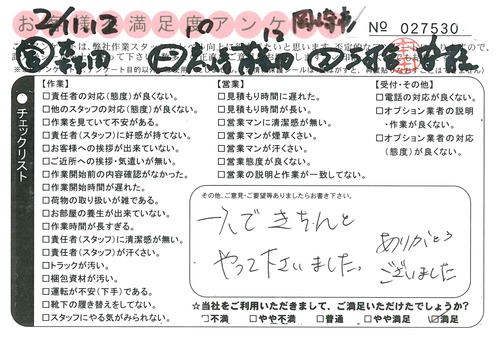 お客様満足度アンケ
岡崎市
No 027530
チェックリスト
【作業】
□責任者の対応(態度)が良くない。
□他のスタッフの対応(態度)が良くない。
□作業を見ていて不安がある。
□責任者(スタッフ)に好感が持てない。
□お客様への挨拶が出来ていない。
□ご近所への挨拶・気遣いが無い。
□作業開始前の内容確認がなかった。
□作業開始時間が遅れた。
□荷物の取り扱いが雑である。
□お部屋の養生が出来ていない。
□作業時間が長すぎる。
□責任者(スタッフ)に清潔感が無い。
□責任者(スタッフ)が汗くさい。
□トラックが汚い。
□梱包資材が汚い。
□運転が不安(下手)である。
□靴下の履き替えをしてない。
□スタッフにやる気がみられない。
【営業】
□見積もり時間に遅れた。
□見積もり時間が長い。
□営業マンに清潔感が無い。
□営業マンが煙草くさい。
□営業マンが汗くさい。
□営業態度が良くない。
□営業の説明と作業が一致してない。
【受付・その他】
□電話の対応が良くない。
□オプション業者の説明
・作業が良くない。
□オプション業者の対応
(態度)が良くない。
その他、ご意見・ご要望等ありましたらお書き下さい。
一人できちんと
やって下さいました。
ありがとう
ございました
☆当社をご利用いただきまして、ご満足いただけたでしょうか？
□不満 □やや不満 □普通 □やや満足 □満足